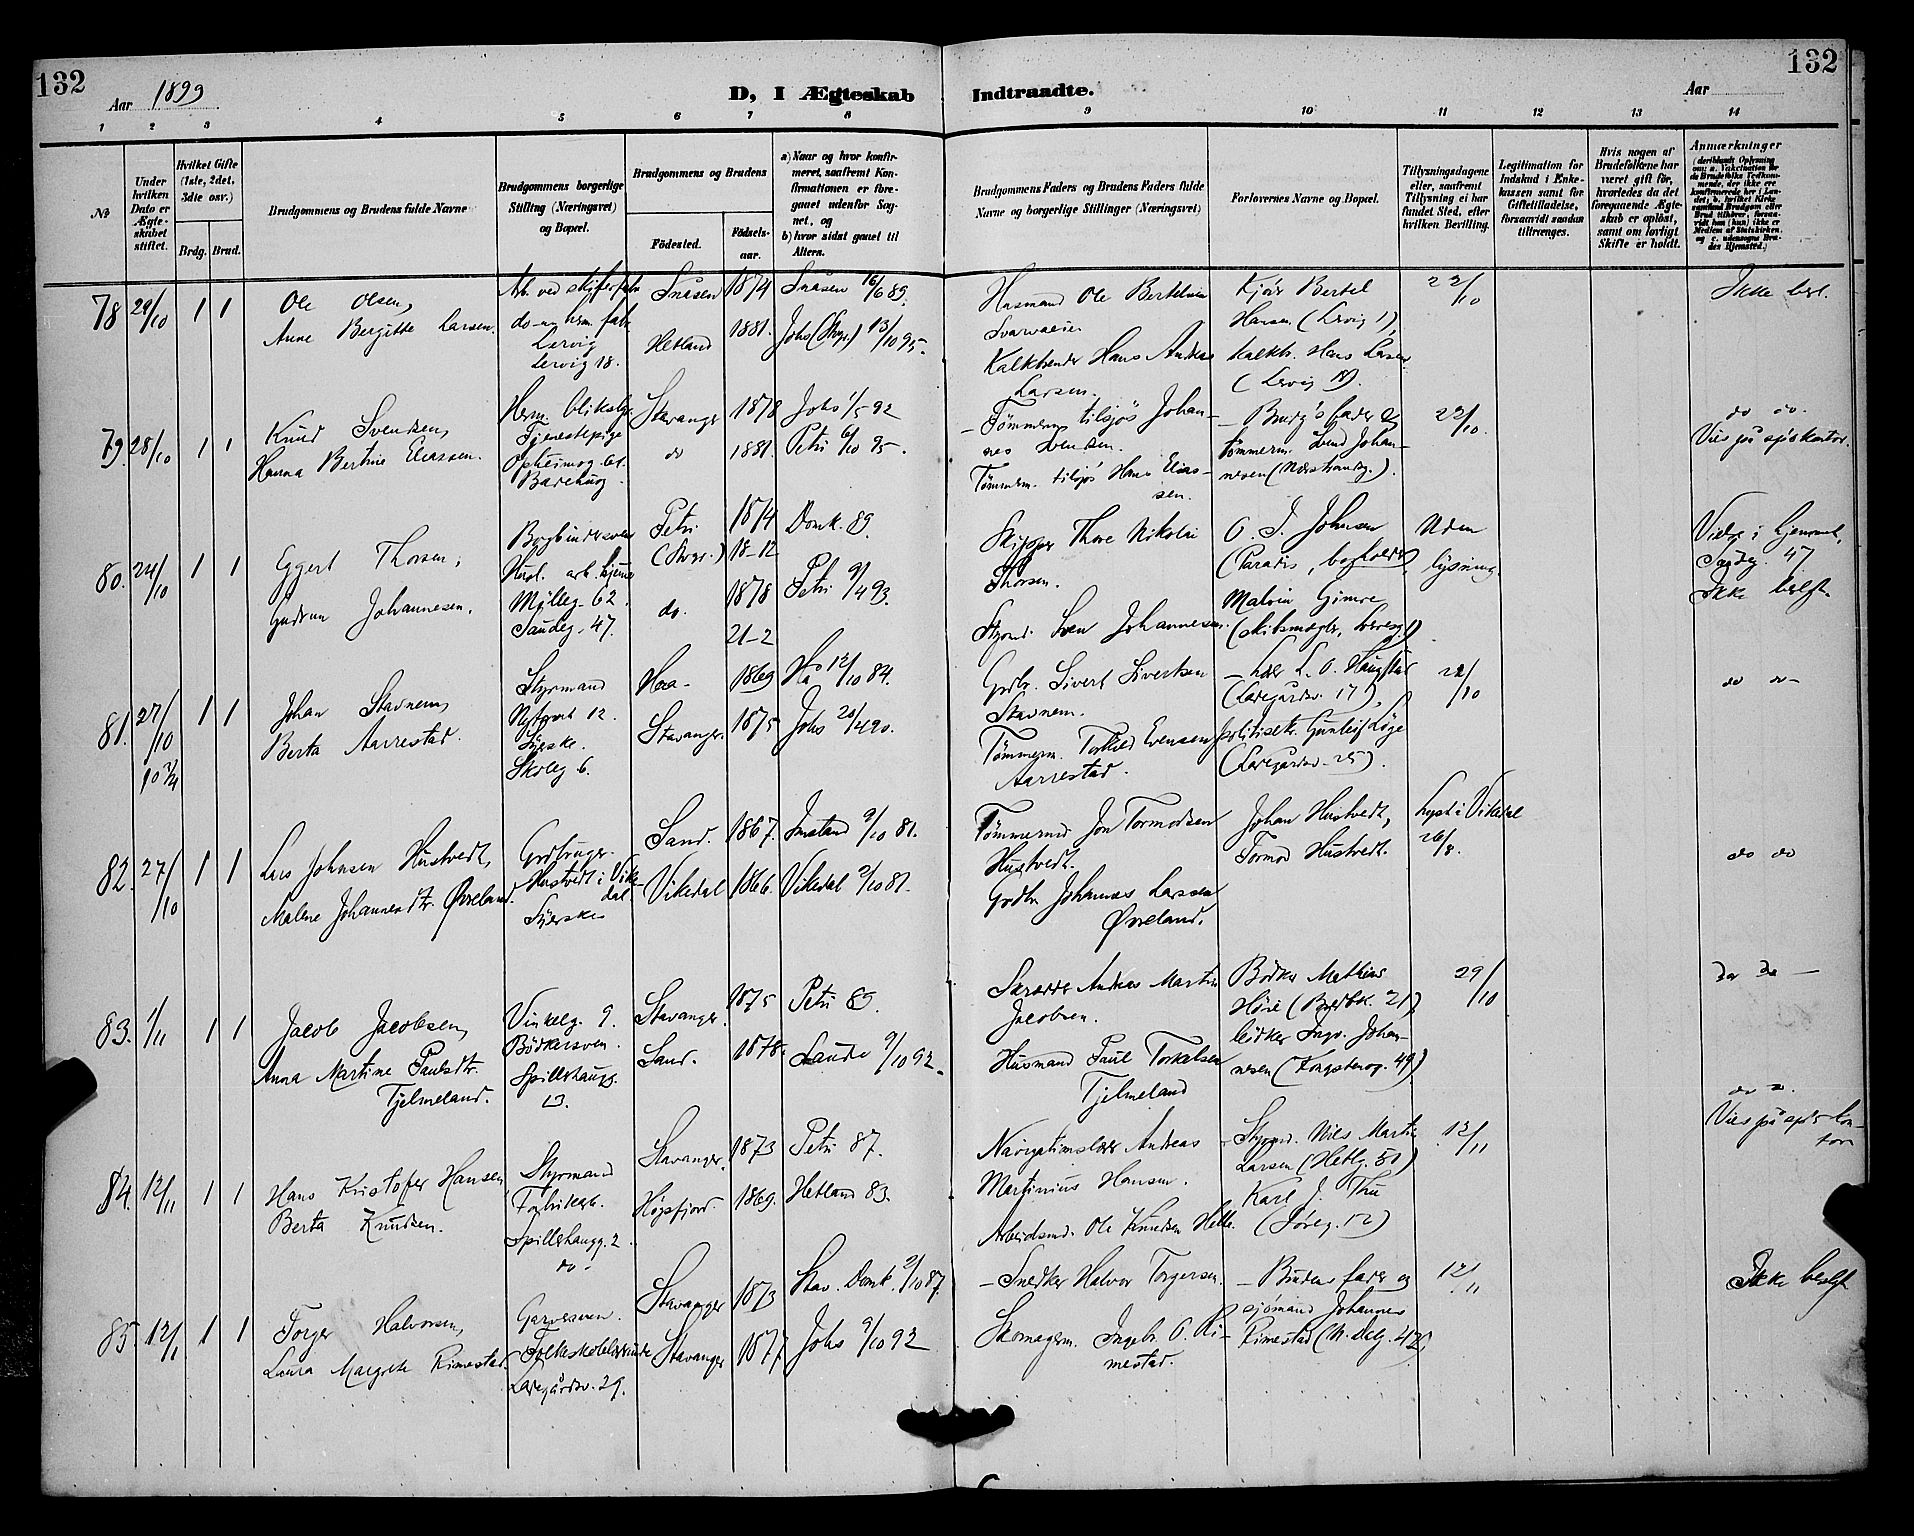 132
Aar 1899
D, I Ægteskab Indtraadte.
Aar
132
1 2 3 4 5 6 7 8 9 10 11 12 13 14
No
Under hvilken Dato er Ægteskabet stiftet.
Hvilket Gifte (1ste, 2det, 3die osv.)
Brdg. Brud.
Brudgommens og Brudens fulde Navne
Brudgommens borgerlige Stilling (Næringsvei) og Bopæl.
Brudgommens og Brudens
Födested.
Födselsaar.
a) Naar og hvor konfirmeret, saafremt Konfirmationen er foregaaet udenfor Sognet, og
b) hvor sidst gaaet til Alters.
Brudgommens Faders og Brudens Faders fulde Navne og borgerlige Stillinger (Næringsvei)
Forlovernes Navne og Bopæl.
Tillysningsdagene eller, saafremt Tillysning ei har fundet Sted, efter hvilken Bevilling.
Legitimation for Indskud i Enkekassen samt for Giftetilladelse, forsaavidt saadan tiltrænges.
Hvis nogen af Brudefolkene har været gift för, hvorledes da det foregaaende Ægteskab er oplöst, samt om lovligt Skifte er holdt.
Anmærkninger
78 29/10 1 1
Ole Olsen,
Anne Bergitte Larsen.
Lervig
Lervig 18.
Snåsen 1874 Snåsen 16/6 89.
Hetland 1881. Johs (Stvgr.) 13/10 95.
Husmand Ole Bertelsen
Svarvaeien
Kalkbrender Hans Andreas
Larsen.
Kjör Bertel
Hansen (Lervig 1),
Kalkbr. Hans Larsen
(Lervig 18).
22/10
Ikke besl.
79. 28/10 1 1
Knud Svendsen,
Hanna Bertine Eliassen.
Tjenestepige
Stavanger 1878 Johs 1/5 92
do 1881. Petri 6/10 95.
Tömmerm. tilsjös Johannes Svendsen.
Tömmerm. tilsjös Hans Eliassen.
Brudg's fader og
tömmerm. Svend Johannesen (Nedstrandsg.).
22/10.
do do.
Vies på spr's kontor.
80. 24/10 1 1
Eggert Thorsen,
Gudrun Johannesen.
Bogbindersvend
Husl. arb. hjemme
Mölleg. 62.
Sandeg. 47.
Petri (Stvgr.) 1874 18-12 Domk. 89.
do. 1878 21-2 Petri 9/4 93.
Skipper Thore Nikolai
Thorsen.
Styrmd. Sven Johannesen.
O. J. Johnsen
(Paradis, bogholder),
Malvin Gimre
Uden
lysning.
Vielse i hjemmet,
Sandeg. 47
Ikke beslgt.
81. 27/10 10 3/4 1 1
Johan Stavnem,
Berta Aarrestad.
Styrmand
Nytorvet 12.
Syerske.
Skoleg 6.
Haa 1869 Hå 12/10 84.
Stavanger. 1875 Johs 20/4 90.
Grdbr. Sivert Sivertsen
Stavnem.
Tömmerm. Torkild Evensen
Aarrestad.
(Ladegårdsv. 17),
politibetr. Gunleif Löge
(Ladegårdsv. 25).
22/10
do do
82. 27/10 1 1
Lars Johnsen Hustvedt,
Malene Johannesdtr. Övreland.
Grdbruger.
Hustvedt i Vikedal.
Syerske
Sand. 1867. Imsland 9/10 81.
Vikedal 1866. Vikedal 2/10 81.
Tömmermd Jon Tormodsen
Hustvedt.
Grdbr. Johannes Larsen
Övreland.
Johan Hustvedt,
Tormod Hustvedt.
Lyst i Vikedal
26/8.
do do
83. 1/11 1 1
Jacob Jacobsen,
Anna Martine Paulsdtr.
Tjelmeland.
Vinkelg. 9.
Bödkersven.
Spilderhaugg.
13.
Stavanger. 1875 Petri 89.
Sand. 1878 Saude 9/10 92.
Skrædder Andreas Martin
Jacobsen.
Husmand Paul Torkelsen
Tjelmeland
Bödker Mathias
bödker Ingv. Johannesen (Kongstenog. 49)
29/10
do do
84. 12/11 1 1
Hans Kristofer Hansen,
Berta Knudsen.
Styrmand
Fabrikarb.
Spilderhaugg. 2
do
Stavanger. 1873 Petri 87.
Högsfjord. 1869. Hetland 83.
Navigationslærer Andreas
Martinius Hansen.
Arbeidsmd. Ole Knudsen Helle.
Styrmd. Nils Martin
Larsen (Hetlg. 50)
Karl J. Thu
(Jöreg. 12)
12/11
do do.
Vies på spr's kontor
85. 12/11 1 1
Torger Halvorsen,
Laura Margrete Rimestad
Garversven.
Folkeskolelærerinde
Ladegårdsv. 29.
Stavanger 1873 Stav. Domk. 2/10 87.
Stavanger 1877 Johs 9/10 92
Snedker Halvor Torgersen.
Skomagerm. Ingebr. O. Rimestad.
Brudens fader og
sjömand Johannes
Rimestad
12/11
Ikke beslgt